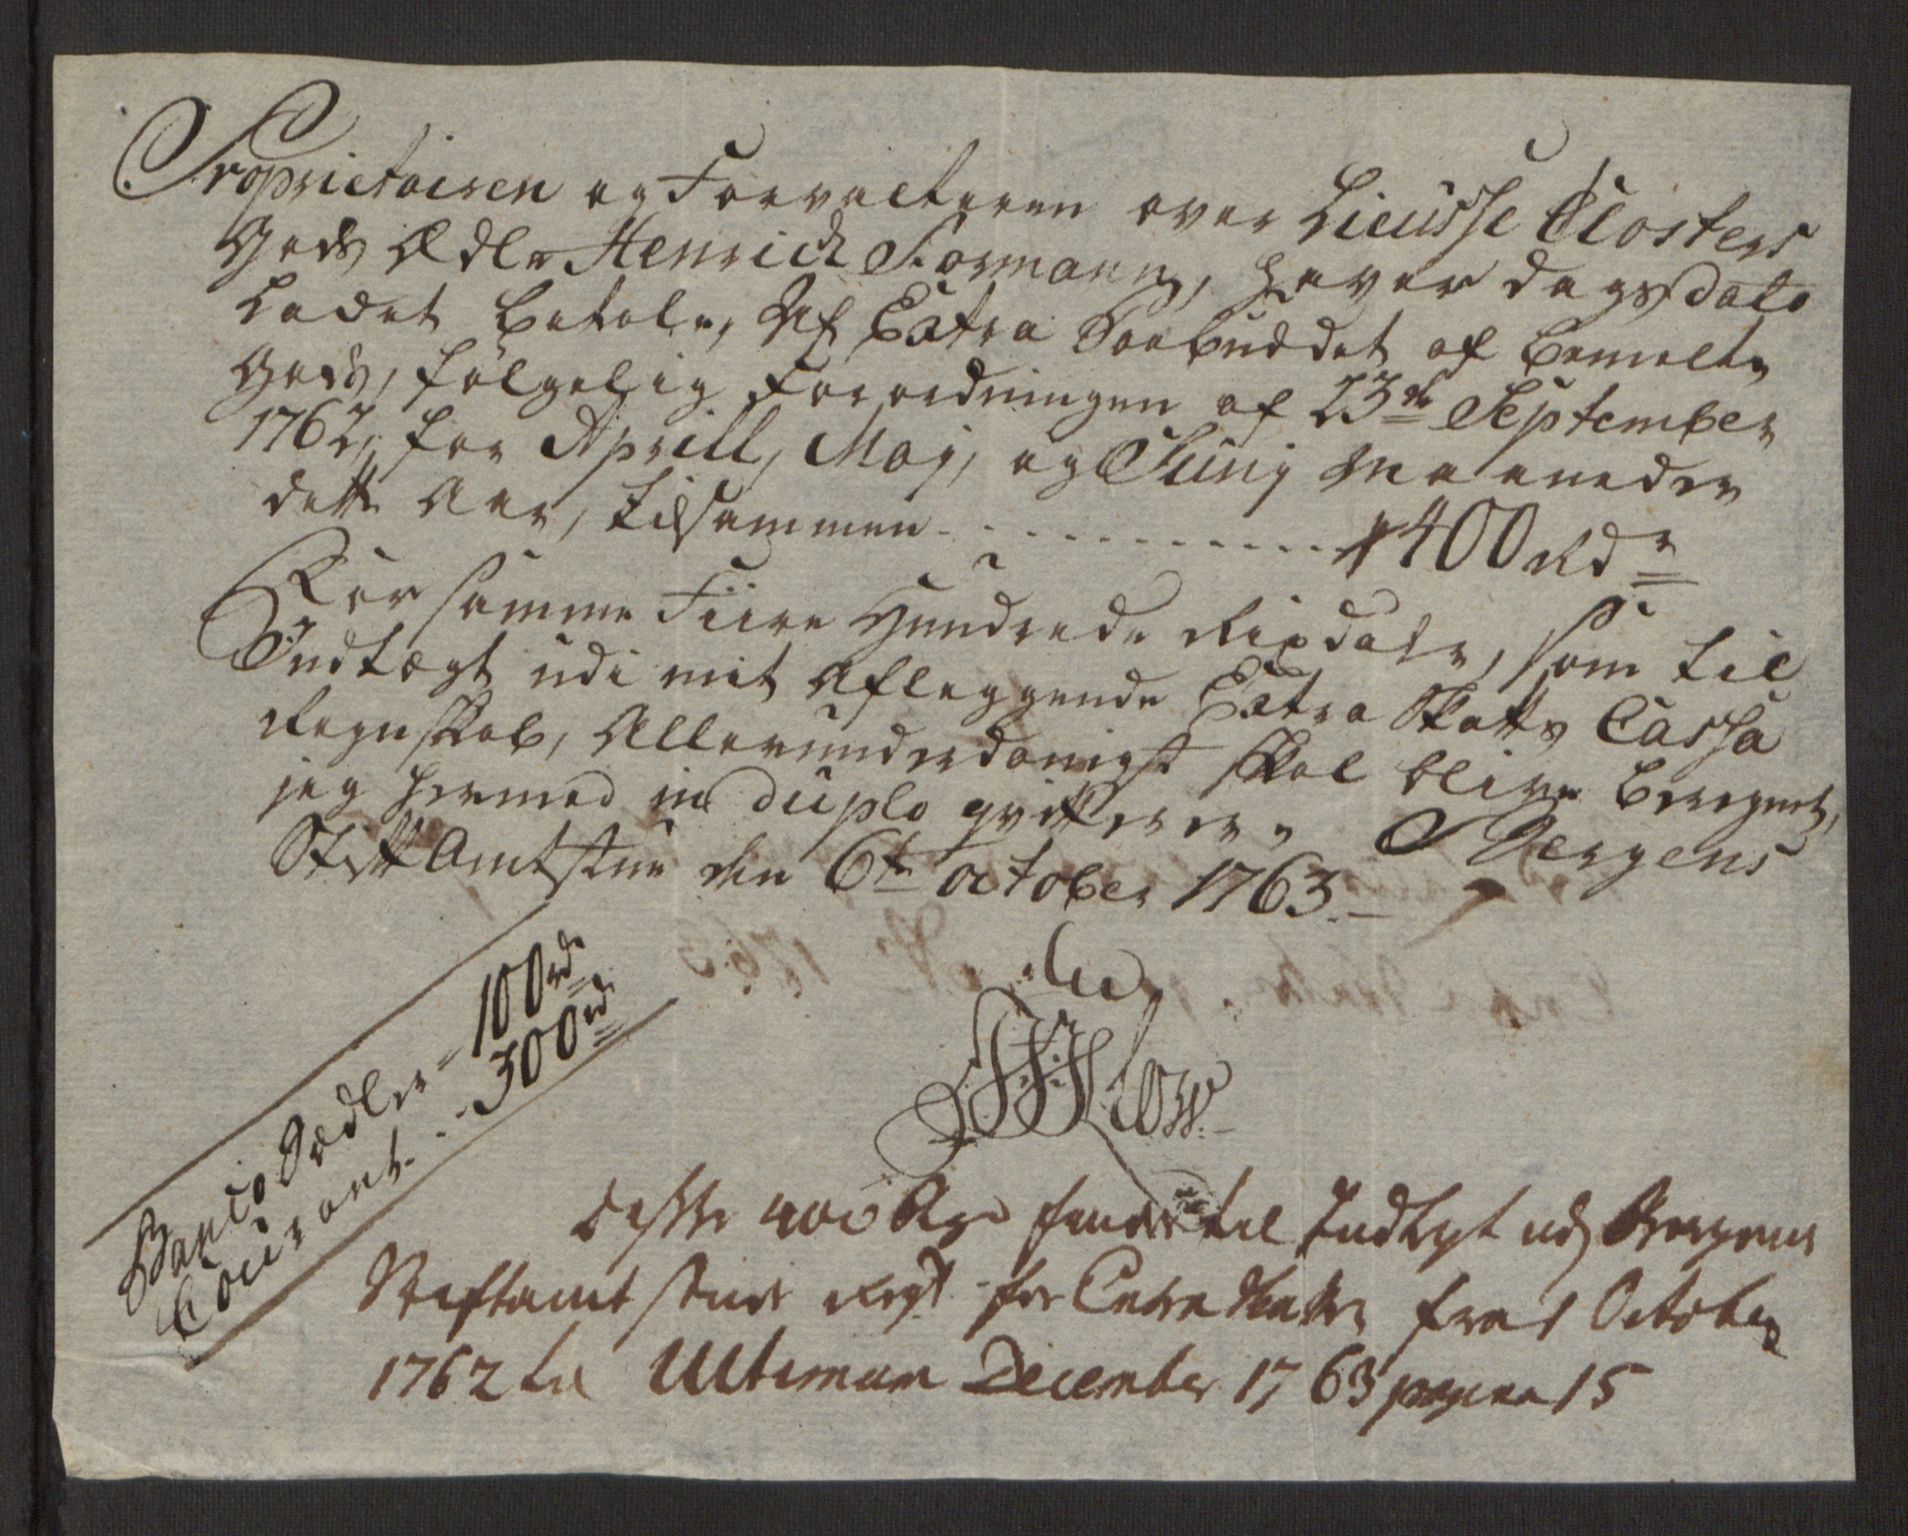 Proprietairen og Forvalteren over Lieusse Closters
Gods Ædle Henrich Formann, haver dags dato
Ladet betale, Af Extra Paabuddet af bemelte
Gods, følgelig Forordningen af 23de September
1762, for Aprill, Maj, og Junj Maaneder
dette Aar, tilsammen - - - - - - - - - 400 Rdr
For samme Fiire Hundrede Rixdaler, som til
Indtægt udi mit Aflæggende Extra Skatts Cassa
Regnskab, Allerunderdanigst skal blive beregnet,
jeg hermed in duplo qvitterer. Bergens
Stift Amtstue den 6te October 1763.
Banco Sædler - 100 rd
Courant - 300 rd
Disse 400 Rdr findes til Indtegt udj Bergens
Stiftamtstues Regsk for Extra Skatten fra 1 October
1762 til Ultimum December 1763 pagina 15